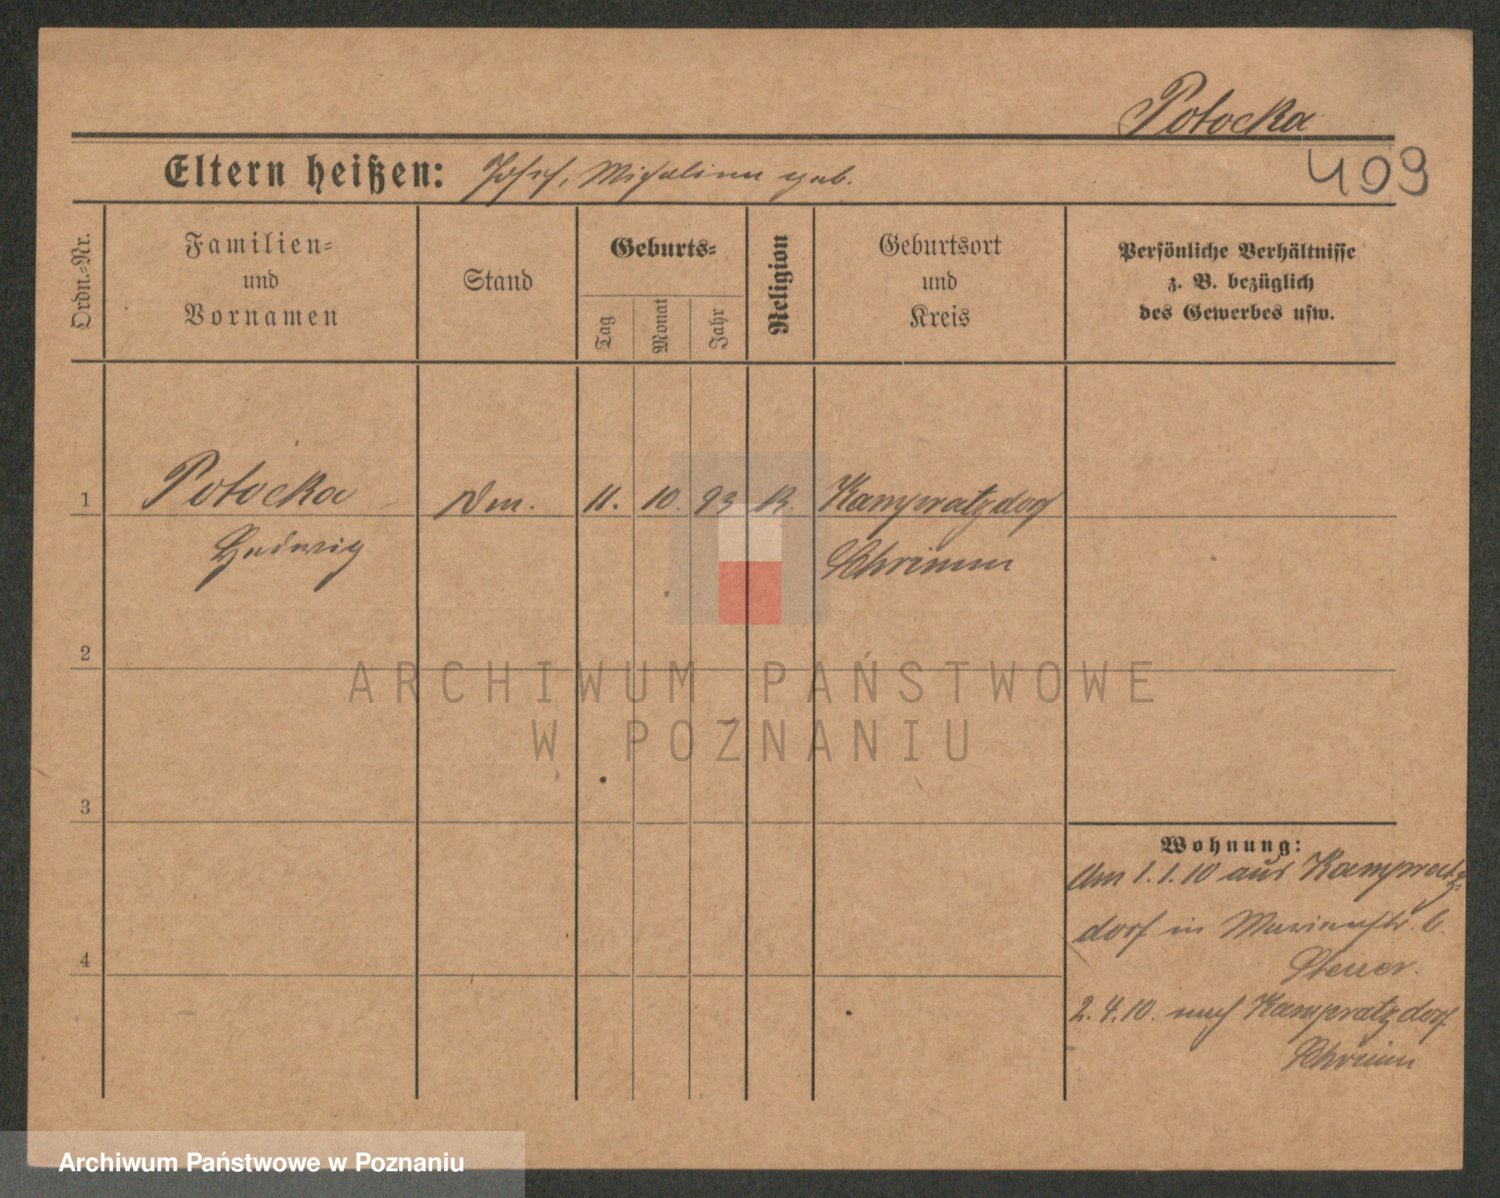 Potocka
409
Eltern heißen: Josef, Michalina geb.
Ordn.-Nr.
Familien-
und
Vornamen
Stand
Geburts-
Tag
Monat
Jahr
Religion
Geburtsort
und
Kreis
Persönliche Verhältnisse
z. B. bezüglich
des Gewerbes usw.
1 Potocka 11. 10. 93 K. Kampratzdorf
Hedwig Schrimm
2
3
4
Wohnung:
Am 1.1.10 aus Kampratz-
dorf in b.
2.4.10. nach Kampratzdorf
Schrimm
ARCHIWUM PAŃSTWOWE
W POZNANIU
Archiwum Państwowe w Poznaniu